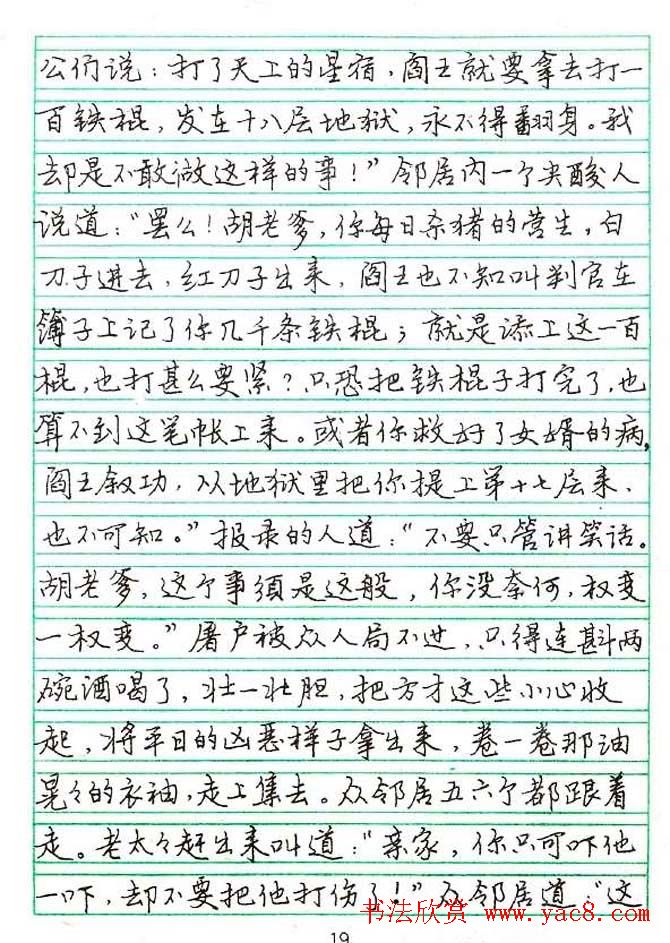 公们说：打了天上的星宿，阎王就要拿去打一
百铁棍，发在十八层地狱，永不得翻身。我
却是不敢做这样的事！”邻居内一个尖酸人
说道：“罢么！胡老爹，你每日杀猪的营生，白
刀子进去，红刀子出来，阎王也不知叫判官在
簿子上记了你几千条铁棍；就是添上这一百
棍，也打甚么要紧？只恐把铁棍子打完了，也
算不到这笔帐上来。或者你救好了女婿的病，
阎王叙功，从地狱里把你提上第十七层来、
也不可知。”报录的人道：“不要只管讲笑话。
胡老爹，这个事须是这般，你没奈何，权变
一权变。”屠户被众人局不过，只得连斟两
碗酒喝了，壮一壮胆，把方才这些小心收
起，将平日的凶恶样子拿出来，卷一卷那油
晃々的衣袖，走上集去。众邻居五六个都跟着
走。老太々赶出来叫道：“亲家，你只可吓他
一吓，却不要把他打伤了！”众邻居道：“这
书法欣赏 www.yac8.com
19